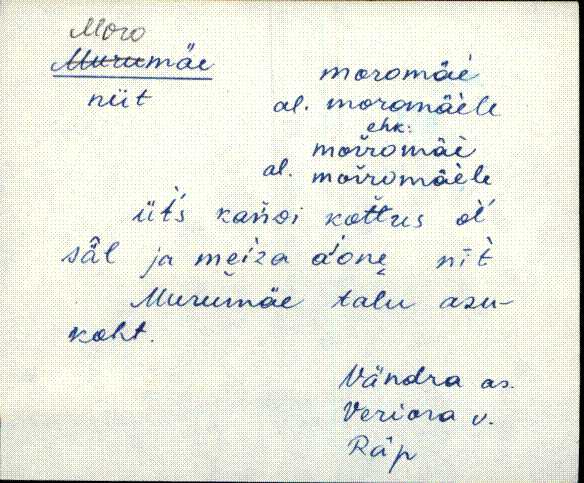 Moro
Murumäe
niit
moromäè
al. moromäèle
ehk:
mořromäè
al. mořromäèle
üt́s kańǵi kot́tus ol´
säl ja meiza aíone nīt
Murumäe talu asu-
koht.
Vändra as.
Veriora v.
Räp